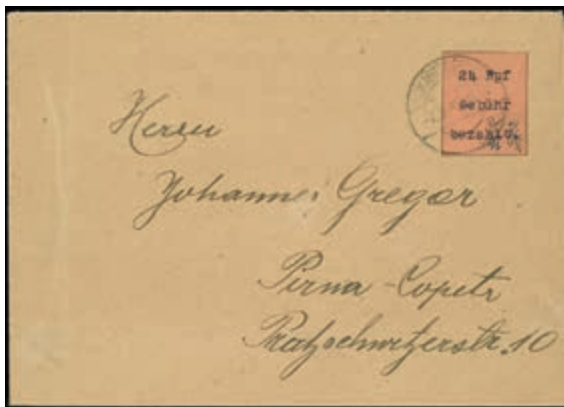 24 Rpf
Gebühr
bezahlt.
Herrn
Johannes Gregor
Pirna-Copitz
Pratzschwitzerstr. 10